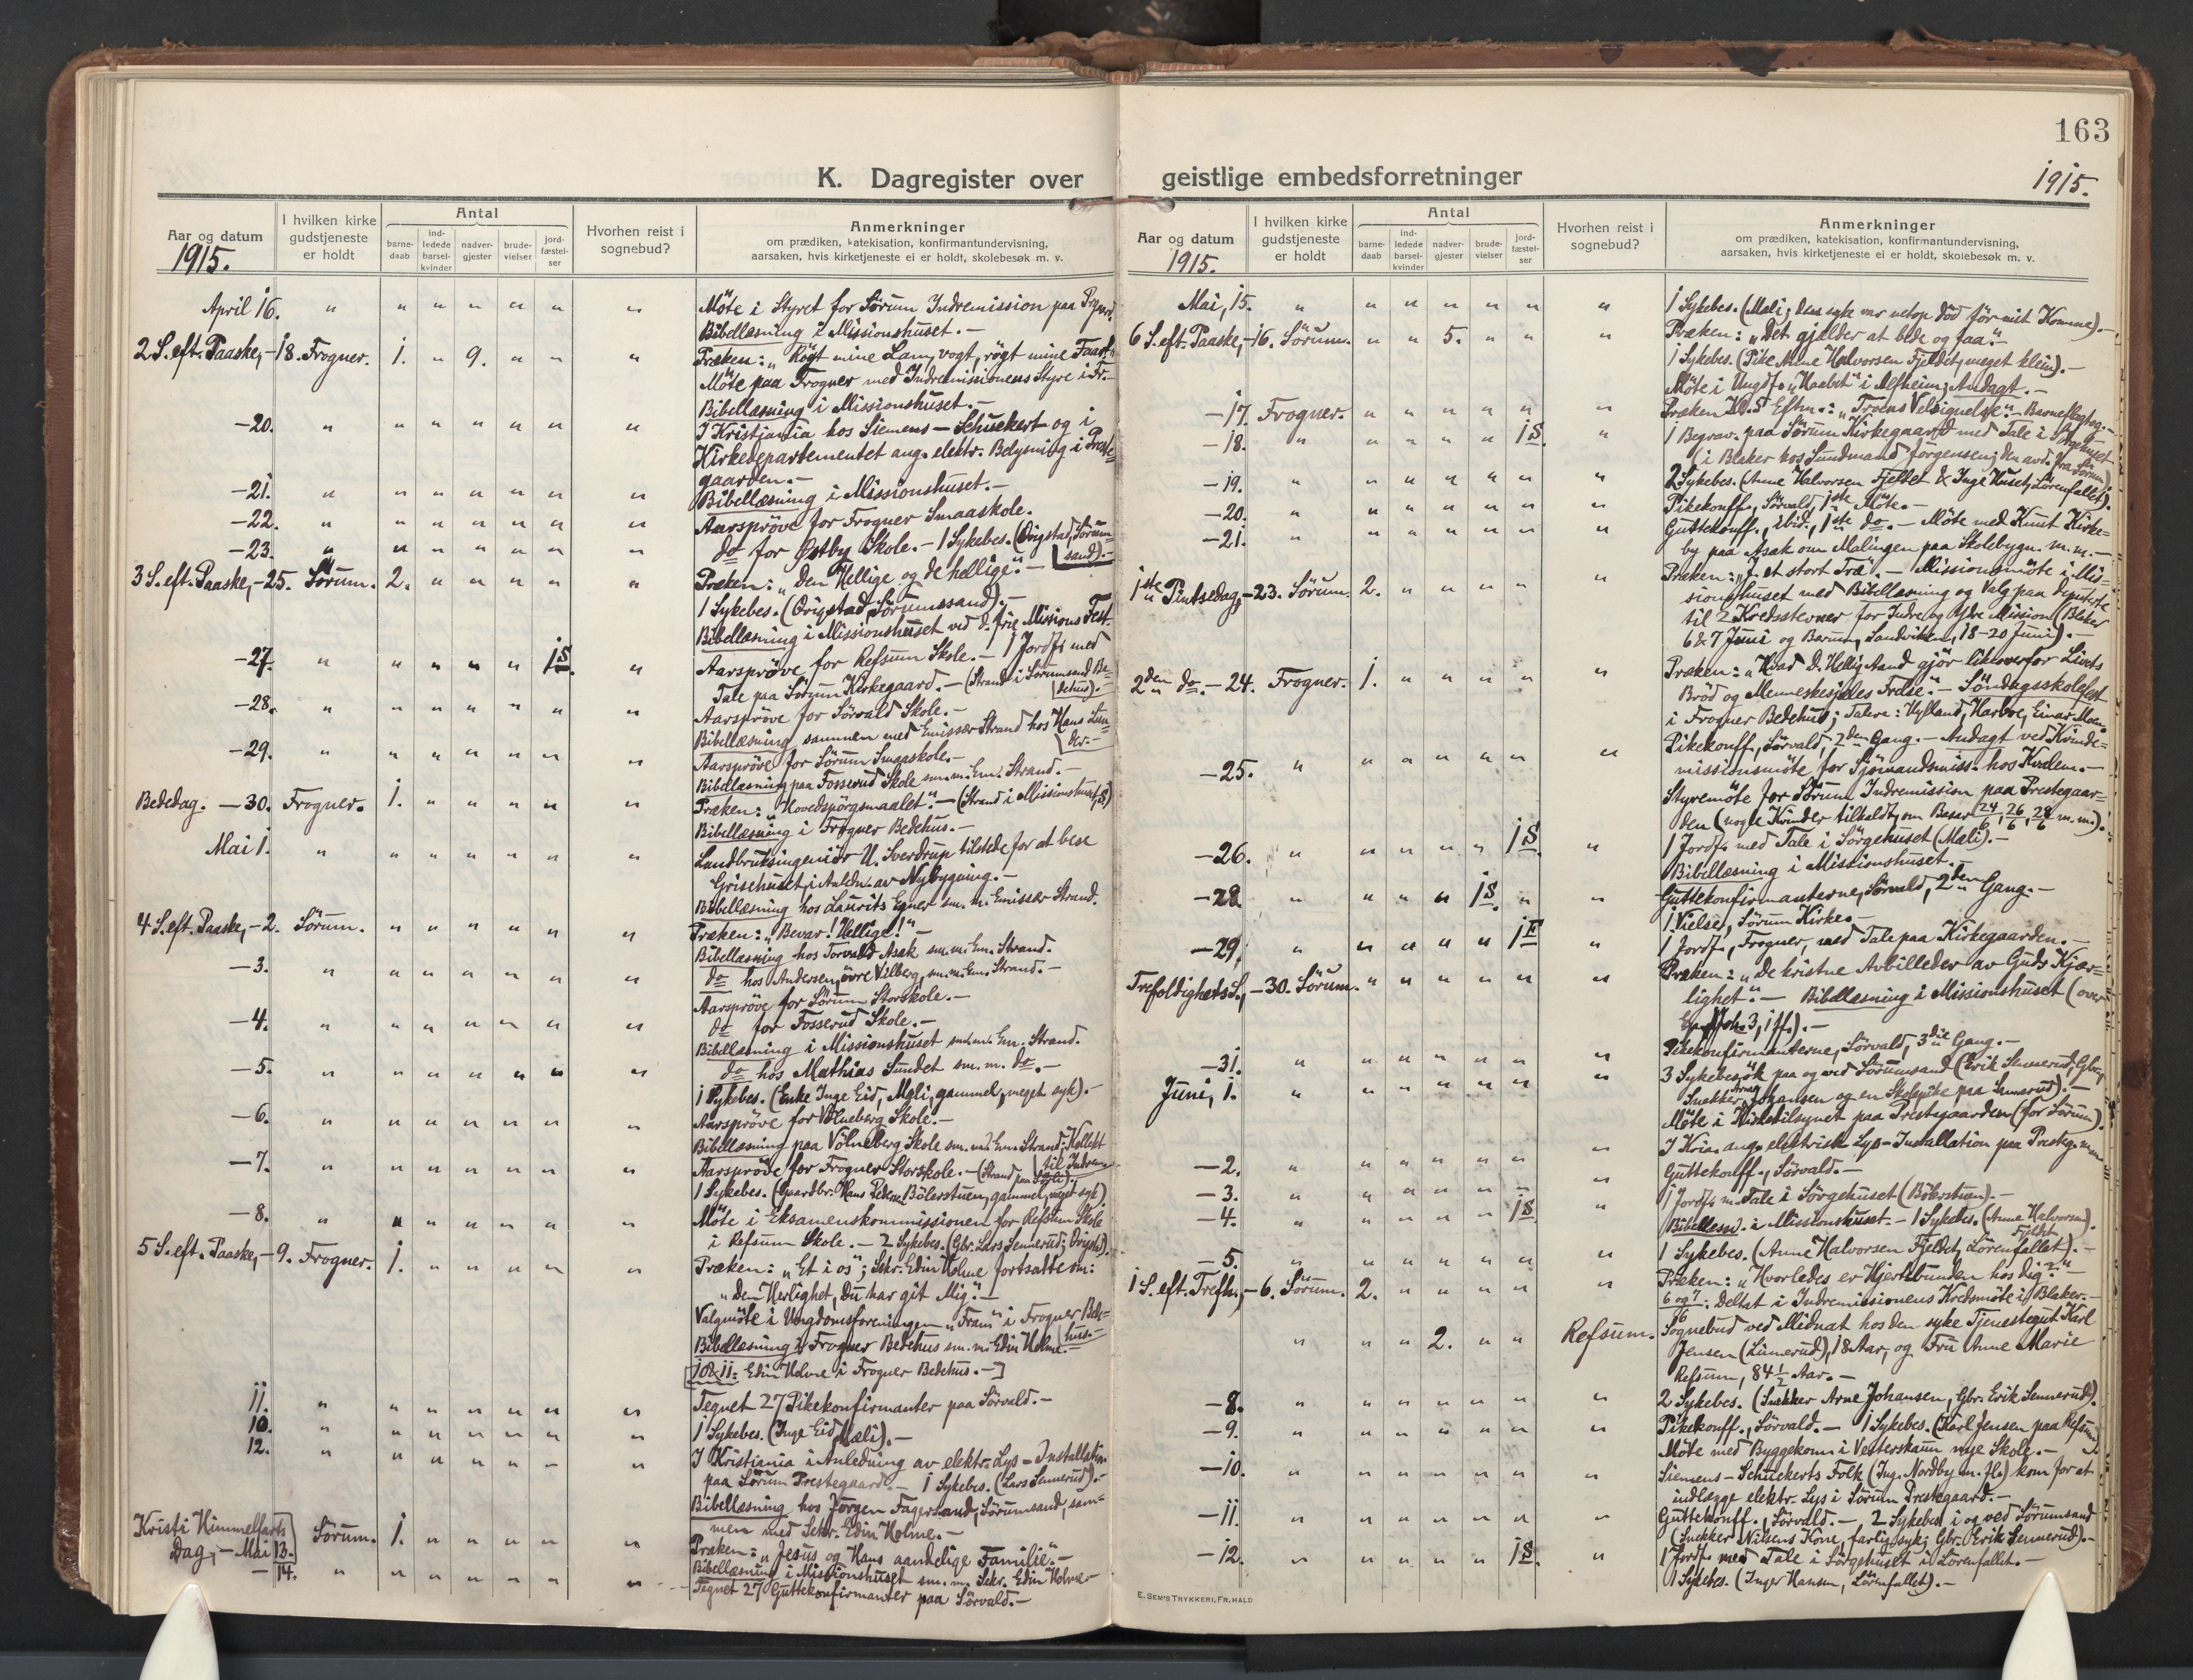 163
K. Dagregister over geistlige embedsforretninger
1915.
Aar og datum
1915.
I hvilken kirke gudstjeneste er holdt
Antal
barne-daab
ind-ledede barsel-kvinder
nadver-gjester
brude-vielser
jord-fæstel-ser
Hvorhen reist i sognebud?
Anmerkninger
om prædiken, katekisation, konfirmantundervisning,
aarsaken, hvis kirketjeneste ei er holdt, skolebesøk m. v.
April 16. " " " " " " " Möte i Styret for Sørum Indremission paa
Bibellæsning i Missionshuset.—
2 S. eft. Paaske,—18. Frogner. 1. " 9. " " " Præken: „Rögt mine Lam, vogt, rögt mine Faar!"
Möte paa Frogner med Indremissionens Styre i Fr.—
Bibellæsning i Missionshuset.—
—20. " " " " " " " I Kristiania hos Siemens—Schuckert og i
Kirkedepartementet ang. elektr. Belysning i Preste=
gaarden.—
—21. " " " " " " " Bibellæsning i Missionshuset.—
—22. " " " " " " " Aarspröve for Frogner Smaaskole.
—23. " " " " " " " do for Østby Skole.— 1 Sykebes. (Örigstad, Sörum=
sand).—
3 S. eft. Paaske,—25. Sörum. 2. " " " " " Præken: „Den Hellige og de hellige".—
1 Sykebes. (Örigstad, Sörumssand).—
Bibellæsning i Missionshuset ved d. frie Missions Fest.
—27. " " " " " 1 S. " Aarspröve for Refsum Skole.— 1 Jordf. med
Tale paa Sörum Kirkegaard.— (Strand i Sörumsand Be=
dehus).—
—28. " " " " " " " Aarspröve for Sörvald Skole.—
Bibellæsning sammen med Emissær Strand hos Hans
—29. " " " " " " " Aarspröve for Sörum Smaaskole.—
Bibellæsning paa Fosserud Skole sm. m. Em. Strand.—
Bededag. —30. Frogner. 1. " " " " " Præken: „Hovedspörgsmaalet".— (Strand i Missionshuset, S.)
Bibellæsning i Frogner Bedehus.—
Mai 1. " " " " " " " Landbruksingeniör U. Sverdrup tilstede for at bese
Grisehuset i Anledn. av Nybygning.—
Bibellæsning hos Laurits Egner sm. m. Emissær Strand.
4 S. eft. Paaske,—2. Sörum. " " " " " " Præken: „Bevar! Hellige!"—
Bibellæsning hos Torvald Asak sm. m. Em. Strand.
—3. " " " " " " " do hos Andersen, övre Vilberg, sm. m. Em. Strand.—
Aarspröve for Sörum Storskole.—
—4. " " " " " " " do for Fosserud Skole.—
Bibellæsning i Missionshuset sm. m. Em. Strand.
—5. " " " " " " " do hos Mathias Sundet sm. m. do.—
1 Sykebes. (Enke Inge Eid, Mæli, gammel, meget syk).—
—6. " " " " " " " Aarspröve for Völneberg Skole.—
Bibellæsning paa Völneberg Skole sm. m. Em. Strand; Kollekt
—7. " " " " " " " Aarspröve for Frogner Storskole.— (Strand paa
1 Sykebes. (Gaardbr. Hans Böllerstuen, gammel, meget syk)
—8. " " " " " " " Möte i Eksamenskommissionen for Refsum Skole
i Refsum Skole.— 2 Sykebes. (Gbr. Lars Sennerud;
5 S. eft. Paaske,—9. Frogner. 1. " " " " " Præken: „Et i os"; Sekr. Edin Holme fortsatte om:
„den Herlighet, Du har git Mig".—
Valgmöte i Ungdomsforeningen „Fram" i Frogner Bede=
hus.—
Bibellæsning i Frogner Bedehus sm. m. Edin Holme.—
[10&11: Edin Holme i Frogner Bedehus.—]
11. " " " " " " " Tegnet 27 Pikekonfirmanter paa Sörvald.—
10. " " " " " " " 1 Sykebes. (Inge Eid, Mæli).—
12. " " " " " " " I Kristiania i Anledning av elektr. Lys=Installation
paa Sörum Prestegaard.— 1 Sykebes. (Lars Sennerud).—
Bibellæsning hos Jørgen Fagersand, Sörumsand, sam=
men med Sekr. Edin Holme.—
Kristi Himmelfarts
Dag,—Mai 13. Sörum. 1. " " " " " Præken: „Jesus og Hans aandelige Familie".—
Bibellæsning i Missionshuset sm. m. Sekr. Edin Holme
—14. " " " " " " " Tegnet 27 Guttekonfirmanter paa Sörvald.—
Aar og datum
1915.
I hvilken kirke gudstjeneste er holdt
Antal
barne-daab
ind-ledede barsel-kvinder
nadver-gjester
brude-vielser
jord-fæstel-ser
Hvorhen reist i sognebud?
Anmerkninger
om prædiken, katekisation, konfirmantundervisning,
aarsaken, hvis kirketjeneste ei er holdt, skolebesøk m. v.
Mai, 15. " " " " " " " 1 Sykebes. (Mæli; den syke var netop död för mit Komme).—
6 S. eft. Paaske,—16. Sörum. " " 5. " " " Præken: „Det gjælder at bede og faa".—
1 Sykebes. (Pike Anne Halvorsen Fjeldet, meget klein).—
Möte i Ungdf. „Haabet" i Alfheim; Andagt.—
—17. Frogner. " " " " " " Præken Efterm.: „Troens Velsignelse".— Barneflagtog.—
—18. " " " " " 1 S. " 1 Begrav. paa Sörum Kirkegaard med Tale i Sörgehuset
(i Blaker hos Sundmand Jörgensen; den avd. fra Sörum).
—19. " " " " " " " 2 Sykebes. (Anne Halvorsen Fjeldet & Inge Huset, Lörenfallet).
—20. " " " " " " " Pikekonff., Sörvald, 1ste Möte.—
—21. " " " " " " " Guttekonff., ibid., 1ste do.— Möte med Knut Kirke=
by paa Asak om Malingen paa Skolebygn. m. m.—
1ste Pintsedag,—23. Sörum. 2. " " " " " Præken: „I et stort Træ".— Missionsmöte i Mis=
sionshuset med Bibellæsning og Valg paa Deputerte
til 2 Kredsstevner for Indre og Ydre Mission (Blaker
6 & 7 Juni og Bærum, Sandviken, 18—20 Juni).—
2den do.—24. Frogner. 1. " " " " " Præken: „Hvad d. Hellig Aand gjör likeoverfor Livets
Bröd og Menneskesjeles Frelse".— Söndagsskolefest
i Frogner Bedehus; Talere: Hylland, Harboe, Einar Moen
—25. " " " " " " " Pikekonff., Sörvald, 2den Gang.— Andagt ved Kvinde=
missionsmöte for Sjömandsmiss. hos Kvalem.—
Styremöte for Sörum Indremission paa Prestegaar=
den (nogle Kvinder tilkaldt, om Basar 24/6, 26/6, 28/6 m. m.).
—26. " " " " " 1 S. " 1 Jordf. med Tale i Sörgehuset (Mæli).—
Bibellæsning i Missionshuset.—
—28. " " " " 1 S. " " Guttekonfirmanterne, Sörvald, 2den Gang.—
1 Vielse, Sörum Kirke.—
—29. " " " " " 1 F. " 1 Jordf., Frogner, med Tale paa Kirkegaarden.—
Trefoldighets S.,—30. Sörum. " " " " " " Præken: „De kristne Avbilleder av Guds Kjær=
lighet".— Bibellæsning i Missionshuset (over
Joh. 3, 1 ff.).—
—31. " " " " " " " Pikekonfirmanterne, Sörvald, 3die Gang.—
Juni, 1. " " " " " " " 3 Sykebesök paa og ved Sörumsand (Erik Sennerud, Gbr.;
Snekker Arne Johansen og en Skolepike paa Sennerud).—
Möte i Kirketilsynet paa Prestegaarden (for Sörum).
—2. " " " " " " " I Kria. ang. elektrisk Lys=Installation paa Presteg. m. m.
—3. " " " " " " " Guttekonff., Sörvald.—
—4. " " " " " 1 S. " 1 Jordf. m. Tale i Sörgehuset (Bölerstuen).—
Bibellæsn. i Missionshuset.— 1 Sykebes. (Anne Halvorsen
Fjeldet).
—5. " " " " " " " 1 Sykebes. (Anne Halvorsen Fjeldet, Lörenfallet).—
1 S. eft. Trefh.,—6. Sörum. 2. " " " " " Præken: „Hvorledes er Hjertebunden hos dig?"
6 og 7/6: Deltat i Indremissionens Kredsmöte i Blaker.—
" " " 2. " " Refsum. Sognebud ved Midnat hos den syke Tjenestegut Karl
Jensen (Linnerud), 18 Aar, og Fru Anne Marie
Refsum, 84 1/2 Aar.—
—8. " " " " " " " 2 Sykebes. (Snekker Arne Johansen, Gbr. Erik Sennerud).
—9. " " " " " " " Pikekonff., Sörvald.— 1 Sykebes. (Karl Jensen paa Refsum).
Möte med Byggekom. i Vesterskaun nye Skole.—
—10. " " " " " " " Siemens—Schuckerts Folk (Ing. Nordby m. fl.) kom for at
indlægge elektr. Lys i Sörum Prestegaard.—
—11. " " " " " " " Guttekonff., Sörvald.—, 2 Sykebes. i og ved Sörumsand
(Snekker Nilsens Kone, farlig syk; Gbr. Erik Sennerud).—
—12. " " " " " 1 S. " 1 Jordf. med Tale i Sörgehuset i Lörenfallet.—
1 Sykebes. (Inger Hansen, Lörenfallet).—
E. SEM'S TRYKKERI, FR. HALD